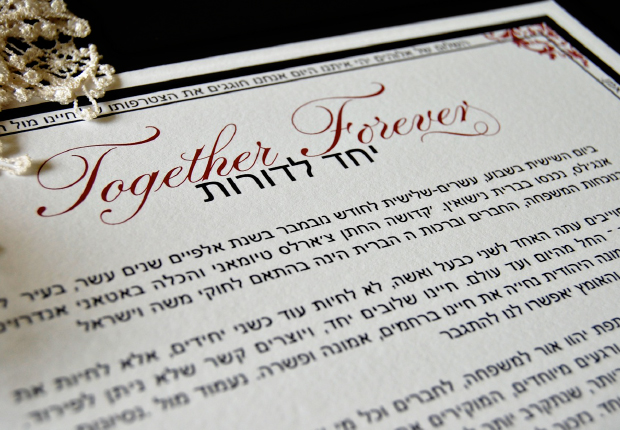 השלום של אלוהים יהי איתנו היום אנחנו חוגגים את הצטרפותו של חיינו מול
Together Forever
יחד לדורות
ביום השישית בשבוע, עשרים-שלישית לחודש נובמבר בשנת אלפיים שנים עשר, בעיר
אנג'לס, נכנסו בברית נישואין. 'קדושה החתן צ'ארלס טיומאני והכלה באטאני אנדרוים
נוכחות המשפחה, החברים וברכות ה הברית הינה בהתאם לחוקי משה וישראל
חוייבים עתה האחד לשני כבעל ואשה, לא לחיות עוד כשני יחידים, אלא לחיות את
החל מהיום ועד עולם. חיינו שלובים יחד, ויוצרים קשר שלא ניתן לפירוד.
היהודית נחייה את חיינו ברחמים, אמונה ופשרה. נעמוד מול נסיונות
והאומץ יאפשרו לנו להתגבר
יהוו אור למשפחה, לחברים וכל מי
ורגעים מיוחדים, המוקירים את
ביותר, שנתקרב יותר